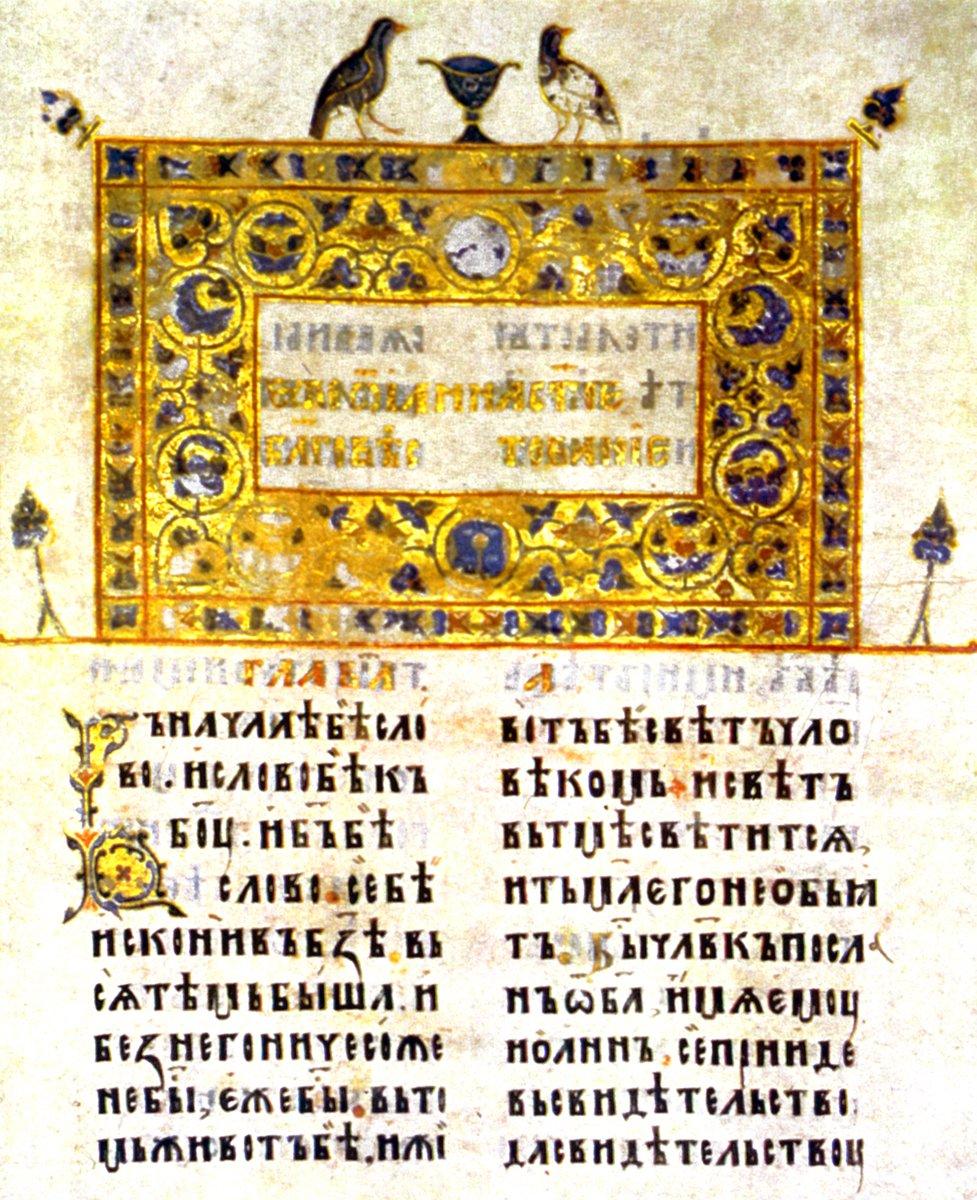 ГЛАВА А
Въначалѣбѣсло
во. исловобѣкъ
боу. ибъбѣ
слово. себѣ
исконивъбꙁѣ. вь
сѧтѣмьбыша. и
беꙁнегоничесоже
небы, ежебы. вьто
мьживотъбѣ. ижі
вотъбѣсвѣтъчло
вѣкомь. исвѣтъ
вьтмѣсвѣтитсѧ,
итьмаегонеобыѧ
тъ. бычлвкъпосла
нъѡба, имѧемоу
иоаннъ, сепріиде
вьсвидѣтельство.
дасвидѣтельствоу